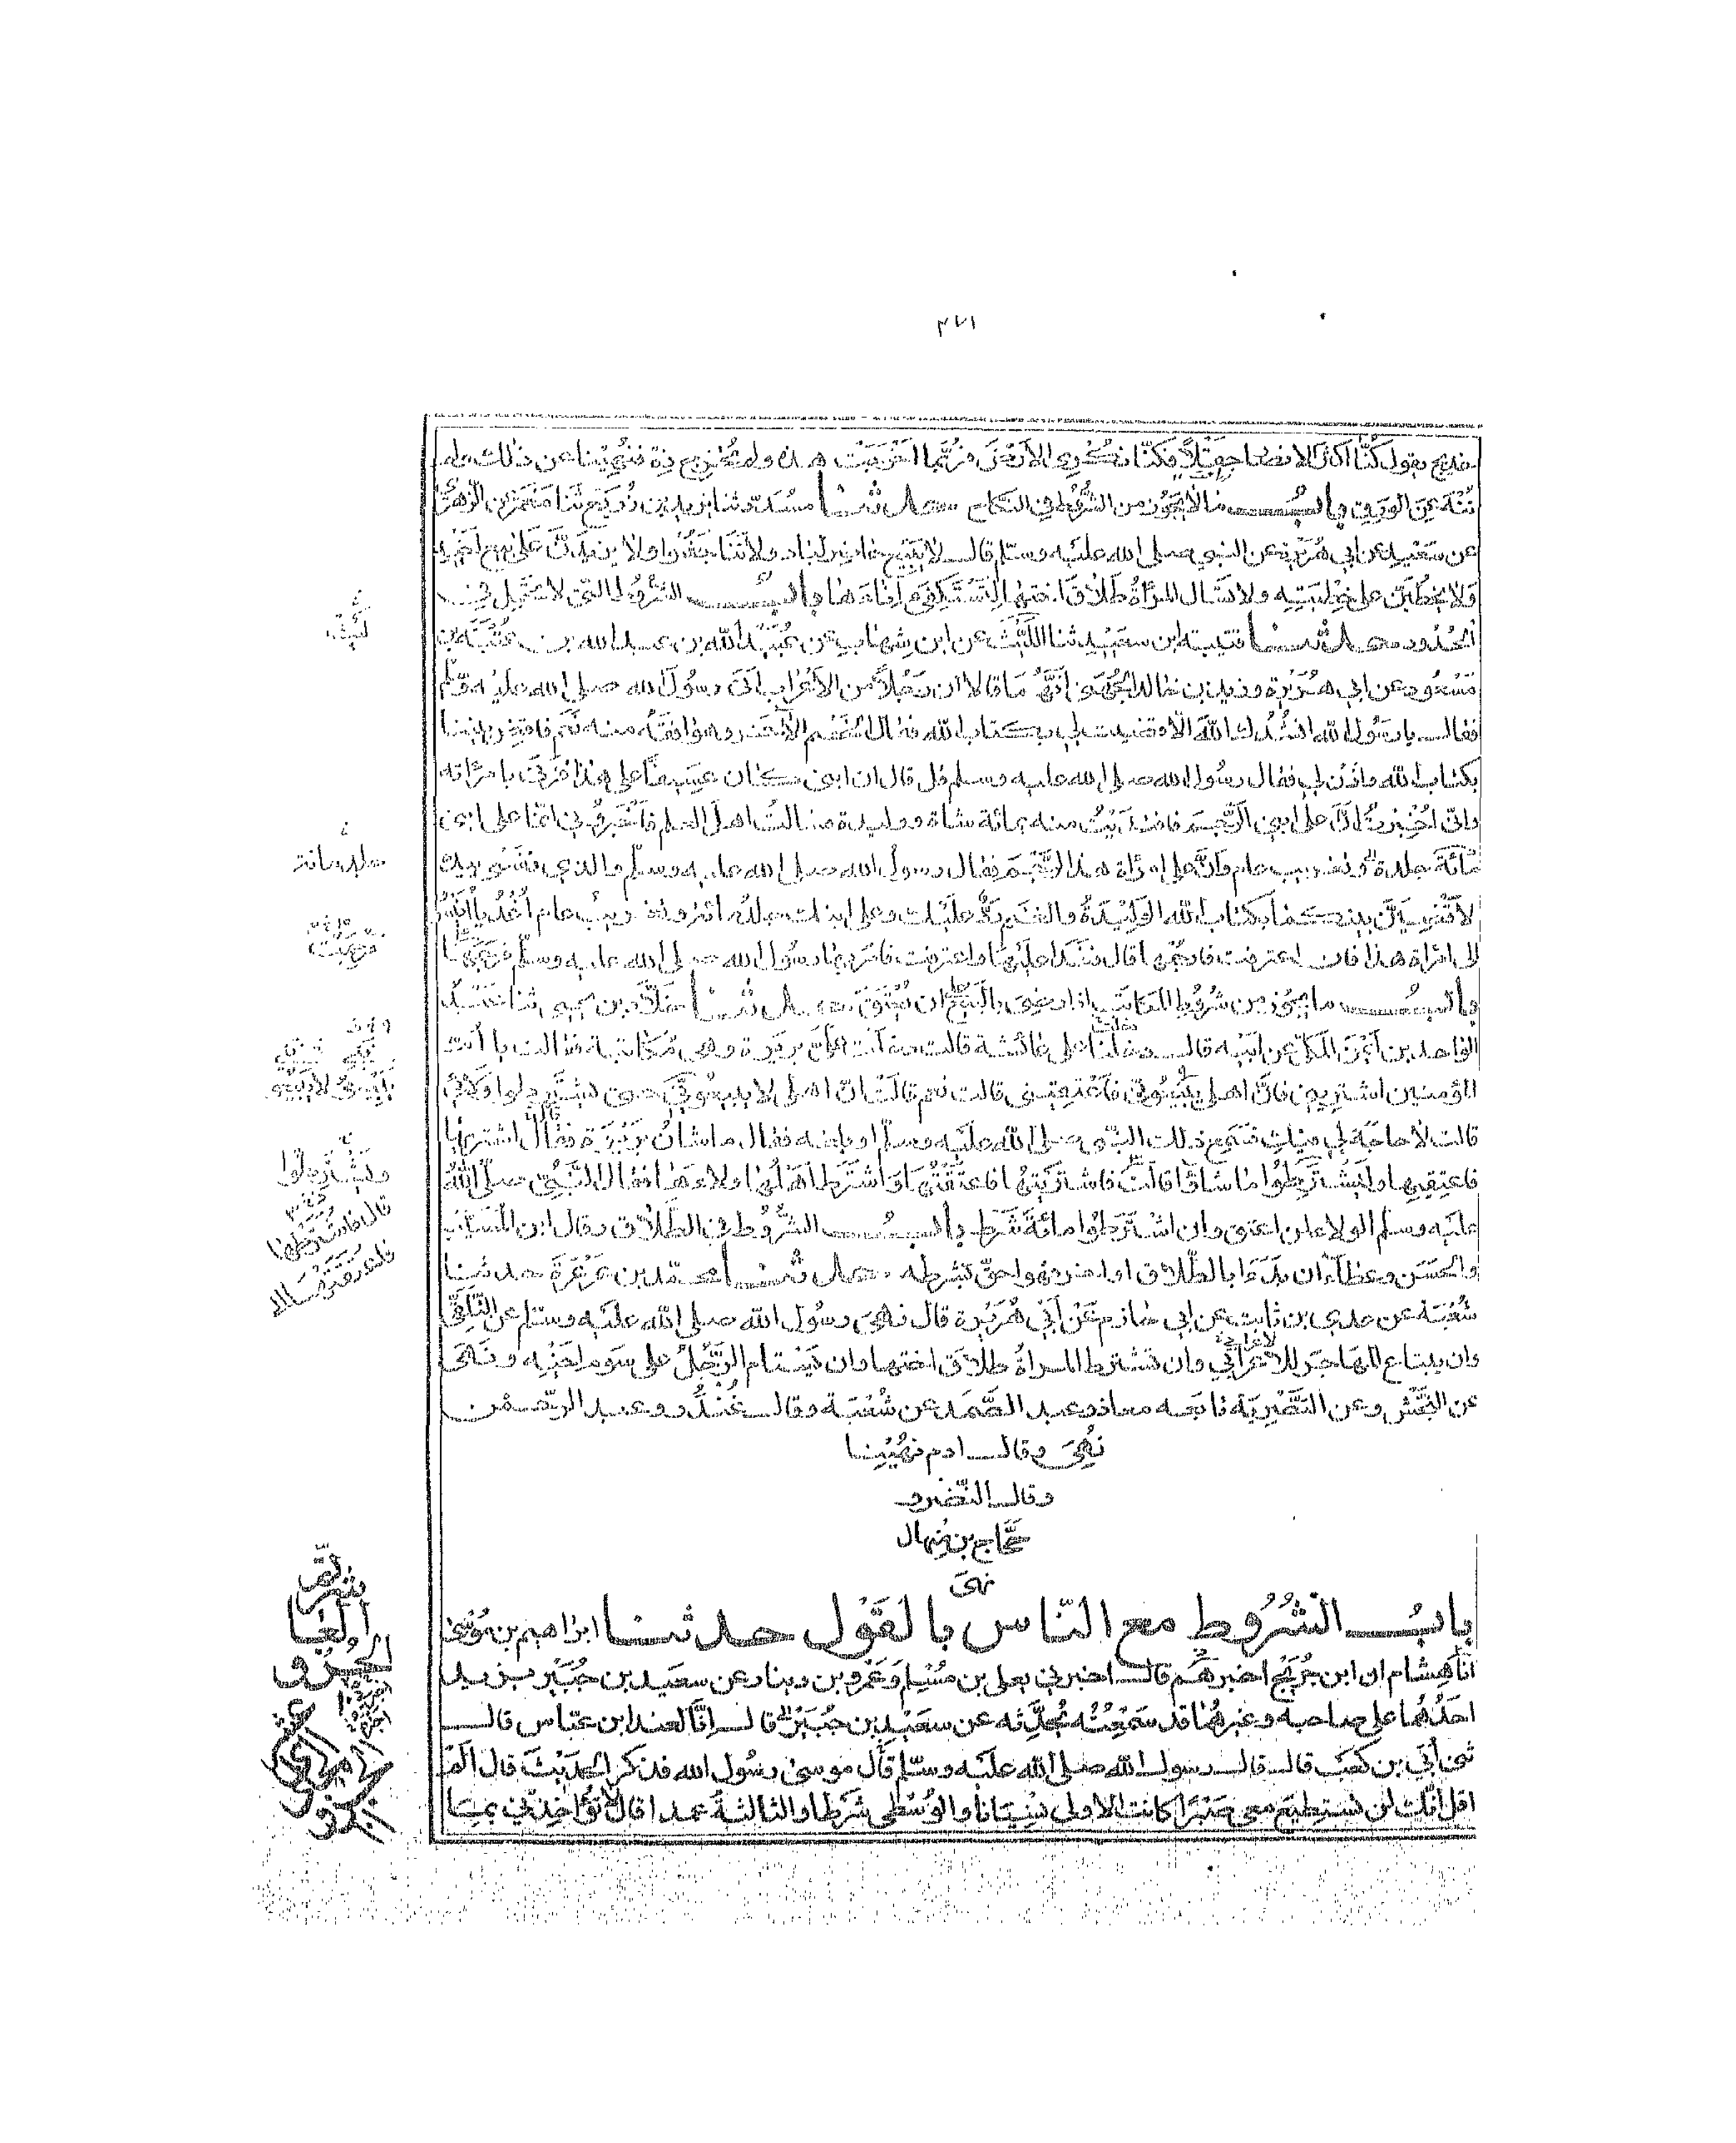 ٣٧١
خديج يقول كنّا أكثر الانصار حقلاً فكنّا نكري الارض فربّما اخرجت هذه ولم تُخرج ذِهْ فنُهينا عن ذلك ولم
نُنْهَ عن الورق بابُ ما لا يجوز من الشُّروط في النكاح حدثنا مسدّد ثنا يزيد بن زُرَيْع ثنا مَعْمَر عن الزهري
عن سَعيد عن ابي هُرَيْرة عن النبي صلى الله عليه وسلم قال لا يبيع حاضر لباد ولا تناجَشُوا ولا يزيدَنّ على بيع اخيه
ولا يخطبنّ على خِطبَتِه ولا تسأل المرأة طلاق اختها لتستكفئ اناءها بابُ الشُّروط التي لا تحل في
الحُدود حدثنا قتيبة ابن سعيد ثنا اللّيث عن ابن شهاب عن عُبَيْد الله بن عبد الله بن عُتْبَة بن
مَسْعُود عن ابي هُرَيْرة وزيد بن خالد الجُهَني أنهما قالا ان رَجُلاً من الأعراب اتى رسُولَ الله صلى الله عليه وسلّم
فقال يا رسُول الله انشُدك اللهَ الّا قضيت لي بكتاب الله فقال الخصم الآخر وهو افقه منه نعم فاقض بيننا
بكتاب الله وائذن لي فقال رسُول الله صلى الله عليه وسلم قل قال ان ابني كان عسيفًا على هذا فزنى بامرَأته
وانّي اُخْبرتُ انّ على ابني الرَّجم فافتدَيْتُ منه بمائة شاة ووليدة فسالتُ اهلَ العلم فأخبروني انّما على ابني
مائة جلدة وتغريب عام وأنّ على امرأة هذا الرَّجْمَ فقال رسول الله صلى الله عليه وسلّم والذي نفسي بيده
لأقْضِيَنّ بينكما بكتاب الله الوَليدَةُ والغنم رَدٌّ عليك وعلى ابنك جلد مائة وتغريب عام أُغْدُ يا أُنَيْسُ
الى امرأة هذا فان اعترفت فارجُمها قال فغَدَا عليها فاعترفت فامر بها رسُول الله صلى الله عليه وسلّم فرُجِمَت
بابُ ما يجوز من شُرُوط المكاتَب اذا رضي بالبَيْع على ان يُعْتَقَ حدثنا خلّاد بن يحيى ثنا عَبْدُ
الواحد بن أيْمَن المكّي عن ابَيْه قال دخلنا على عائشة قالت دخلت علَيّ بريرة وهي مُكاتبة فقالت يا أمّ
المؤمنين اشتريني فانّ اهلي يَبيعُوني فأعتقيني قالت نعم قالَتْ انّ اهلي لا يبيعُونَي حتى يشترطوا ولائي
قالت لا حاجَة لي فيك فسَمع ذلك النبي صلى الله عليه وسلّم او بلغه فقال ما شانُ بَريْرَة فقال اشتريها
فاعتقيها وليَشْترِطُوا ما شاؤا قالَتْ فاشتريتها فاعتَقْتُها واشترط اَهْلُها ولاءها فقال النَّبيُّ صلّى اللهُ
عليه وسلّم الولاء لمن اعتق وان اشترطوا مائة شَرط بابُ الشُّرُوط في الطَّلاق وقال ابن المُسَيّب
والحسَن وعطاء ان بدَءَ بالطّلاق او اخّر فهو احقّ بشرطه حدثنا محمّد بن عَرْعَرة حدثنا
شُعْبَة عن عدي بن ثابت عن ابي حازم عَنْ أبي هُرَيْرة قال نهىَ رسُول الله صلى الله عليه وسلم عن التّلقّي
وان يبتاع المهاجر للأعرابي وان تشترط المرأةُ طلاق اختها وان يَستام الرَّجُلُ على سَوم اخيْه ونَهى
عن النَّجْش وعن التَّصْرِيَة تابعه معاذ وعبد الصَّمَد عن شُعْبَة وقال غُنْدَر وعبد الرّحمن
نُهِيَ وقال ادم نُهينا
وقال النّضر و
حجّاج بن منهال
نهى
بابُ الشُرُوطِ مع النّاس بالقَوْل حدثنا ابراهيم بن مُوْسى
أنا هشام ان ابن جُرَيْج اخبرهُم قال اخبرني يعلى بن مُسْلم وعَمْرو بن دينار عن سعيد بن جُبَيْر يزيد
احدُهُما على صاحبه وغيرهُما قد سَمِعْتُه يُحَدِّثه عن سعَيْدِ بن جُبَيْر قال انّا لعند ابن عبّاس قال
ثنى أبَيّ بن كعَب قال قال رسول الله صلى الله عليه وسلّم قال موسى رسُول الله فذكر الحَديْثَ قال اَلَمْ
اقل انّك لن تستطيعَ معي صَبْرًا كانت الاولى نِسْيَانًا والوُسْطى شرطا والثالثة عمدا قال لا تُؤَاخِذْني بما
وليشْتَرطوا